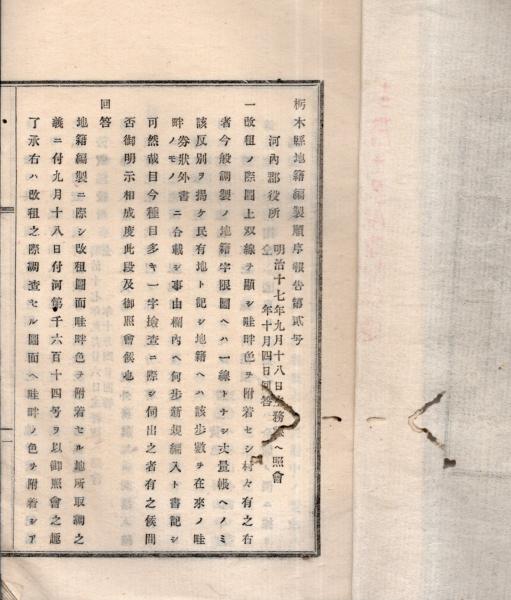 栃木縣地籍編製順序報告第貳号
河內郡役所
明治十七年九月十八日 務 へ照會
仝年十月四日回答
一改租ノ際圖上双線ヲ顯シ畦畔色ヲ附着セシ村々有之右
者今般調製ノ地籍字限圖ヘハ一線トナシ丈量帳ヘノミ
該反別ヲ揚ケ民有地ト記シ地籍ヘハ該步數ヲ在來ノ畦
畔 券狀外書ノモノ ニ合載シ事由欄內ヘ何步新規編入ト書記シ
可然哉目今種目多キ一字撿查ニ際シ伺出之者有之候間
否御明示相成度此段及御照會候也
回答
地籍編製ニ際シ改租圖面畦畔色ヲ附着セル地所取調之
義ニ付九月十八日付河第千六百十四号ヲ以御照會之趣
了承右ハ改租之際調查セル圖面ヘ畦畔ノ色ヲ附着シア